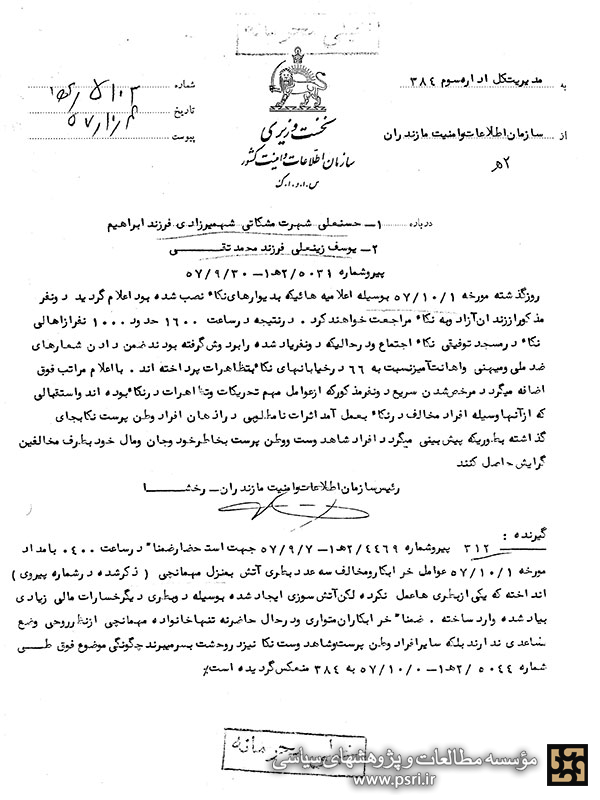 خیلی محرمانه
به مدیریت کل اداره سوم ۳۸۴
شماره
از سازمان اطلاعات و امنیت مازندران
۲ه‍
تاریخ
پیوست
نخست وزیری
سازمان اطلاعات و امنیت کشور
س.ا.و.ا.ک
درباره ۱ـ حسنعلی شهرت مشکاتی شهمیرزادی فرزند ابراهیم
۲ـ یوسف زینعلی فرزند محمد تقی
پیرو شماره ۲/۵۰۳۱ه‍ ۱ـ ۵۷/۹/۳۰
روز گذشته مورخه ۵۷/۱۰/۱ بوسیله اعلامیه هائیکه بدیوارهای نکاء نصب شده بود اعلام گردید دو نفر
مذکور از زندان آزاد و به نکاء مراجعت خواهند کرد . در نتیجه در ساعت ۱۶۰۰ حدود ۱۰۰۰ نفر از اهالی
نکاء در مسجد توفیقی نکاء اجتماع و در حالیکه دو نفر یاد شده را بر دوش گرفته بودند ضمن دادن شعارهای
ضد ملی و میهنی و اهانت آمیز نسبت به ۶۶ در خیابانهای نکاء بتظاهرات پرداخته اند . با اعلام مراتب فوق
اضافه میگردد مرخص شدن سریع دو نفر مذکور که از عوامل مهم تحریکات و تظاهرات در نکاء بوده اند و استقبالی
که از آنها وسیله افراد مخالف در نکاء بعمل آمد اثرات نامطلوبی در اذهان افراد وطن پرست نکا بجای
گذاشته بطوریکه پیش بینی میگردد افراد شاهدوست و وطن پرست بخاطر خود و جان و مال خود بطرف مخالفین
گرایش حاصل کنند
رئیس سازمان اطلاعات و امنیت مازندران ـ رخشا
گیرنده :
۳۱۲ پیرو شماره ۲/۴۴۶۹ه‍ ۱ـ ۵۷/۹/۷ جهت استحضار ضمناً در ساعت ۰۴۰۰ بامداد
مورخه ۵۷/۱۰/۱ عوامل خرابکار و مخالف سه عدد بطری آتش بمنزل مهمانچی ( ذکر شده در شماره پیروی )
انداخته که یکی از بطری ها عمل نکرده لکن آتش سوزی ایجاد شده بوسیله دو بطری دیگر خسارات مالی زیادی
بیاد شده وارد ساخته . ضمناً خرابکاران متواری و در حال حاضر نه تنها خانواده مهمانچی از نظر روحی وضع
مساعدی ندارند بلکه سایر افراد وطن پرست و شاهدوست نکا نیز در وحشت بسر میبرند چگونگی موضوع فوق طی
شماره ۲/۵۰۴۴ه‍ ۱ـ ۵۷/۱۰/۰ به ۳۸۴ منعکس گردیده است٪
خیلی محرمانه
مؤسسه مطالعات و پژوهشهای سیاسی
www.psri.ir